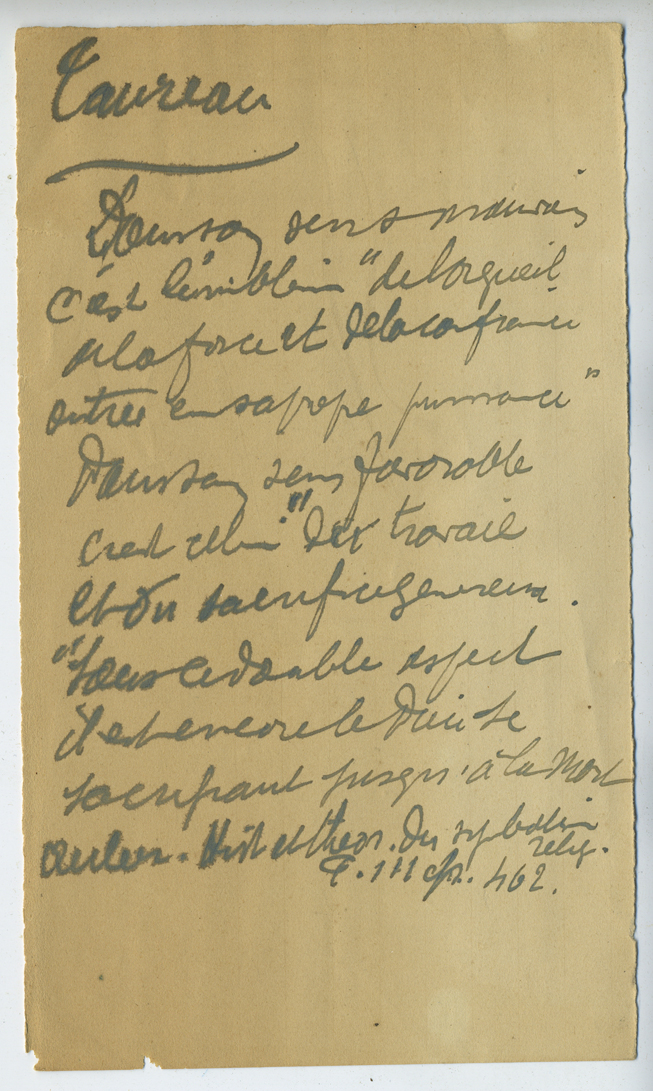 Taureau
Dans son sens mauvais
c'est l'emblème "de l'orgueil
de la force et de la confiance
outrée en sa propre puissance"
Dans son sens favorable
c'est celui "du travail
et du sacrifice généreux.
"Sous ce double aspect
il est encore le Dieu se
sacrifiant jusqu'à la Mort
Auber. Hist et théor. du symbolisme
relig.
T. III ch. 462.